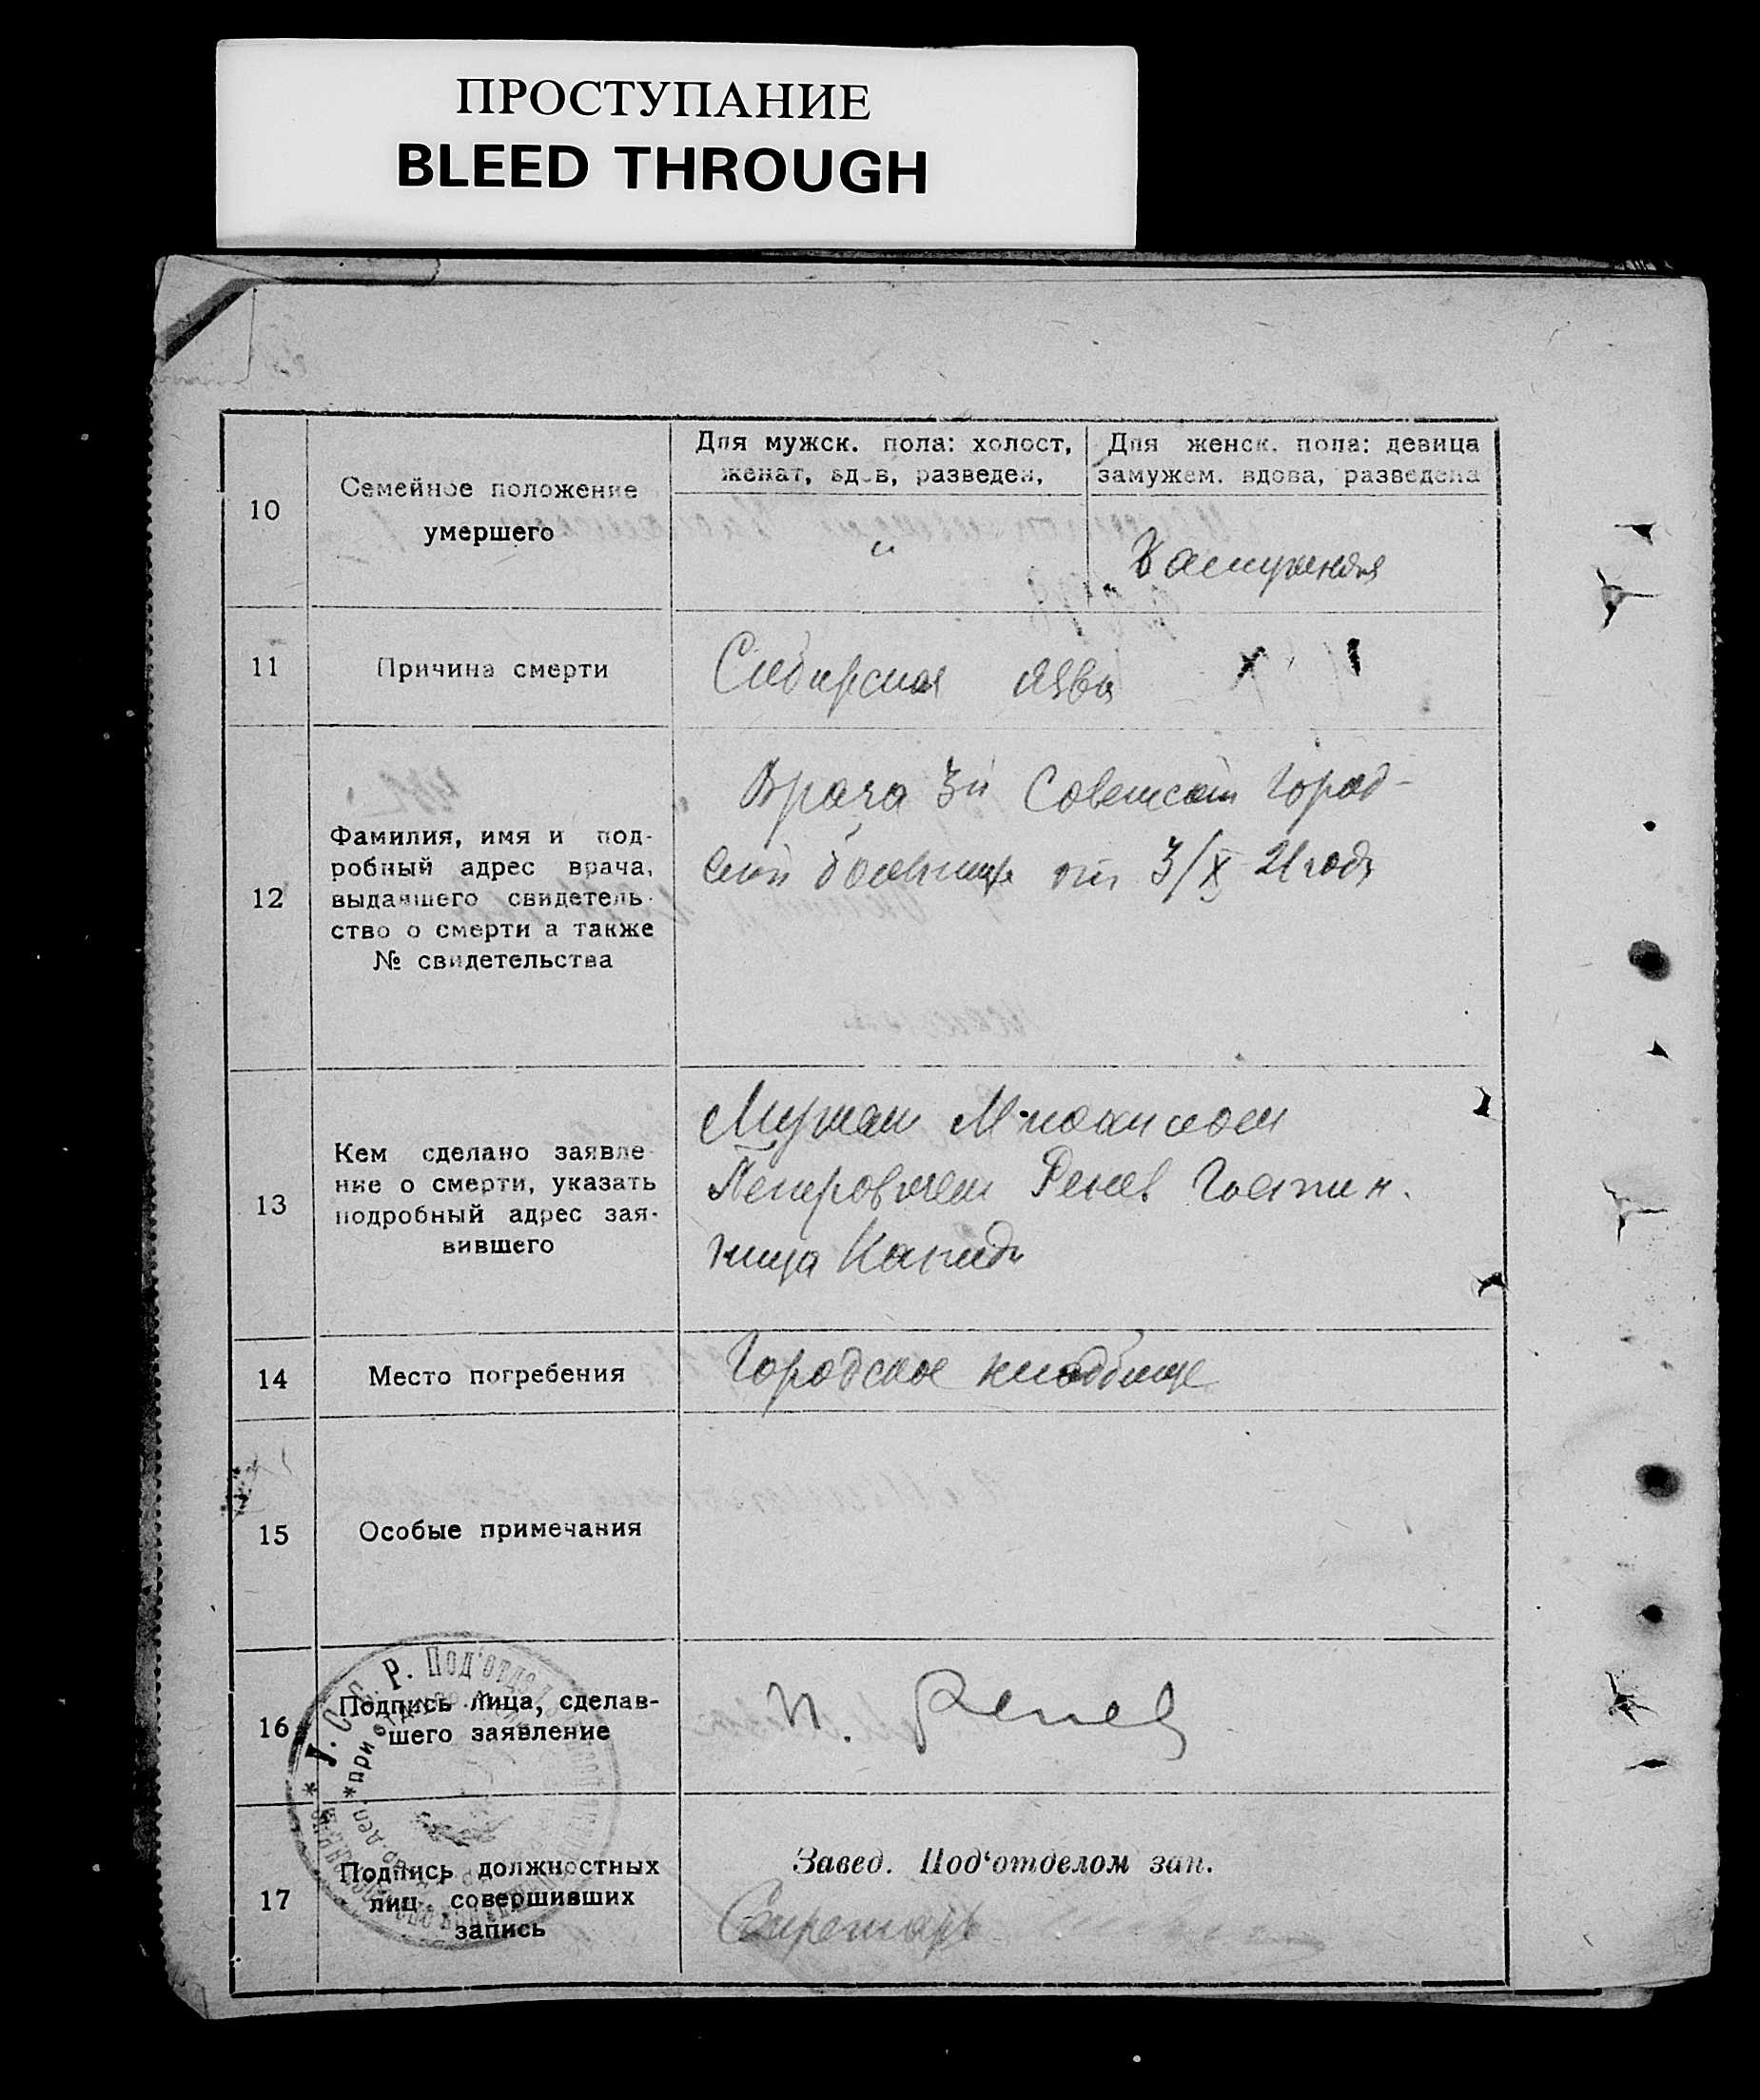 ПРОСТУПАНИЕ
BLEED THROUGH
10
Семейное положение
умершего
Для мужск. пола: холост,
женат, вдов, разведен,
Для женск. пола: девица
замужем. вдова, разведена
"
Замужняя
11
Причина смерти
Сибирская язва
12
Фамилия, имя и под-
робный адрес врача,
выдавшего свидетель-
ство о смерти а также
№ свидетельства
Врача 3й Советской город-
ской больницы от 3/X 21 года
13
Кем сделано заявле-
ние о смерти, указать
подробный адрес зая-
вившего
Мужем
Петровичем Ренев Гостин.
ница Канада
14
Место погребения
Городское кладбище
15
Особые примечания
16
Подпись лица, сделав-
шего заявление
Ренев
17
Подпись должностных
лиц совершивших
запись
Завед. Под'отделом зап.
Секретарь
С. Р. Под'отдел
при